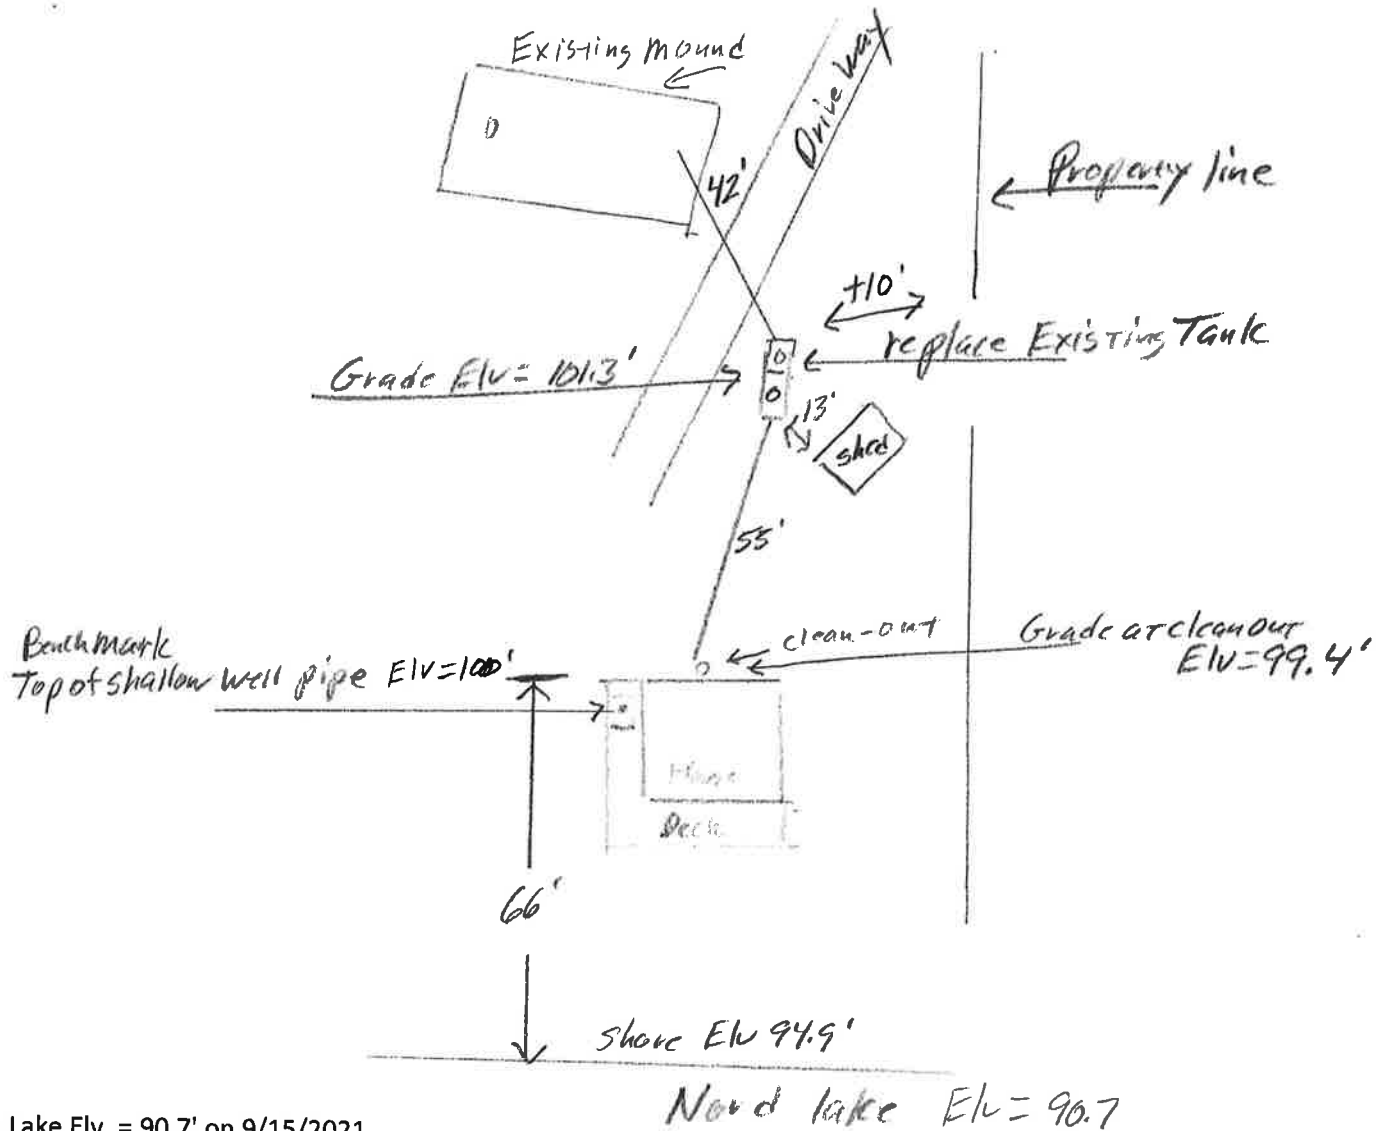 Existing mound
Driveway
42'
Property line
+10'
replace Existing Tank
Grade Elv = 101.3'
13'
shed
55'
clean-out
Grade at cleanout
Elv=99.4'
Benchmark
Top of shallow well pipe Elv=100'
House
Deck
66'
shore Elv 94.9'
Nord lake Elv= 90.7
Lake Elv. = 90.7' on 9/15/2021